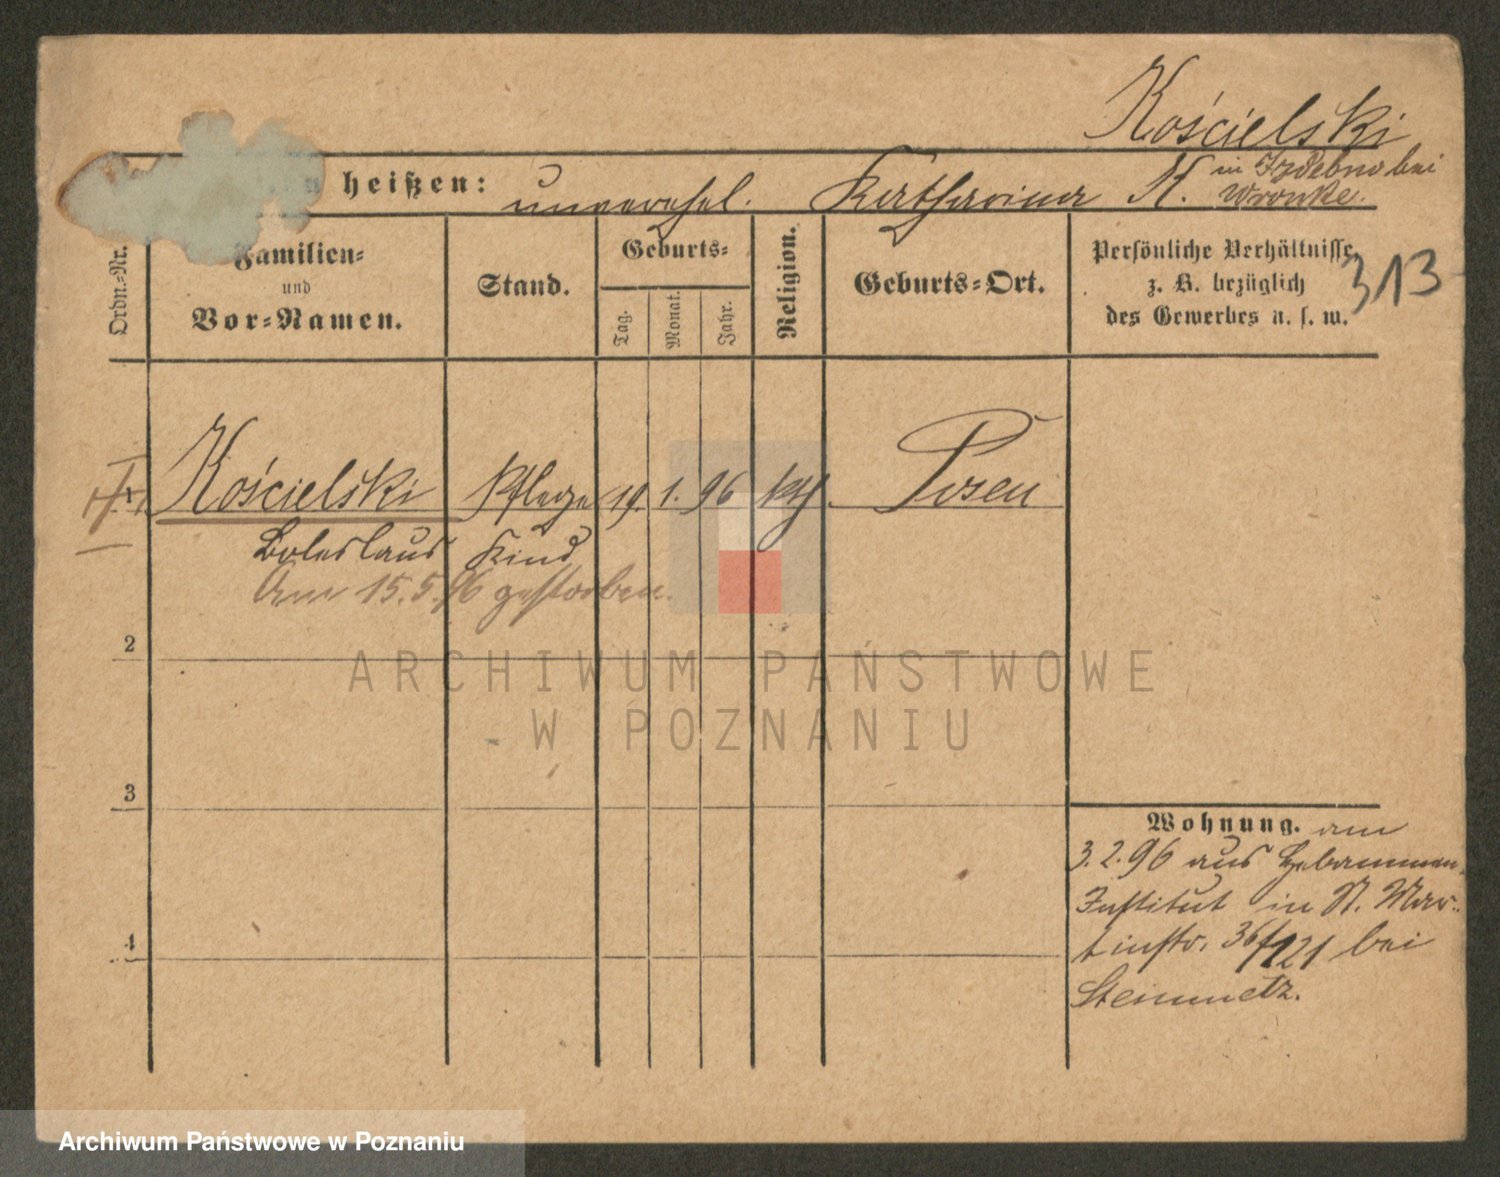 Kościelski
heißen: unverehel. Katharina K. in Izdebno bei
Wronke.
Ordn.-Nr.
Familien-
und
Vor-Namen.
Stand.
Geburts-
Tag.
Monat.
Jahr.
Religion.
Geburts-Ort.
Persönliche Verhältnisse,
z. B. bezüglich
des Gewerbes u. s. w.
313
Kościelski Pflege 19. 1. 96 kth Posen
Boleslaus Kind
Am 15.5.96 gestorben.
2
3
4
Wohnung. am
3.2.96 aus Hebammen
Institut in St. Mar-
tinstr. 36/121 bei
Steinmetz.
ARCHIWUM PAŃSTWOWE
W POZNANIU
Archiwum Państwowe w Poznaniu